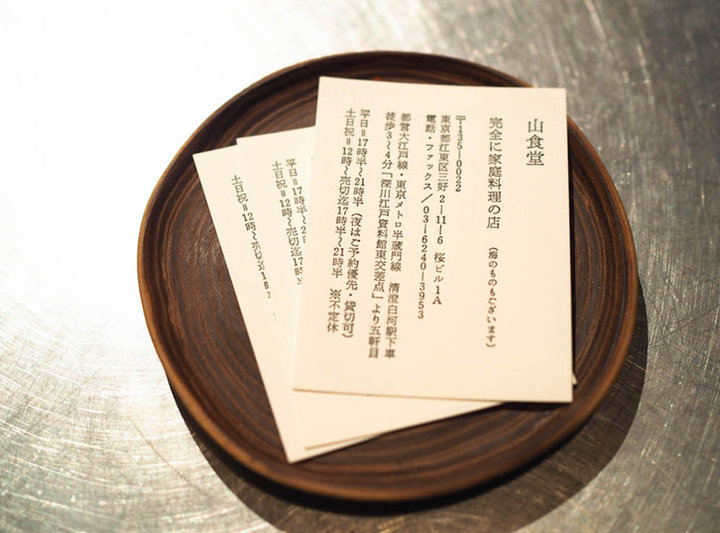 山食堂
完全に家庭料理の店 (海のものもございます)
〒135-0022
東京都江東区三好2-11-6 桜ビル1A
電話・ファックス/03-6240-3953
都営大江戸線・東京メトロ半蔵門線 清澄白河駅下車
徒歩3〜4分「深川江戸資料館東交差点」より五軒目
平日=17時半〜21時半(夜はご予約優先・貸切可)
土日祝=12時〜売切迄17時半〜21時半 ※不定休
平日=17時半〜2
土日祝=12時〜売切迄
土日祝=12時〜売切迄